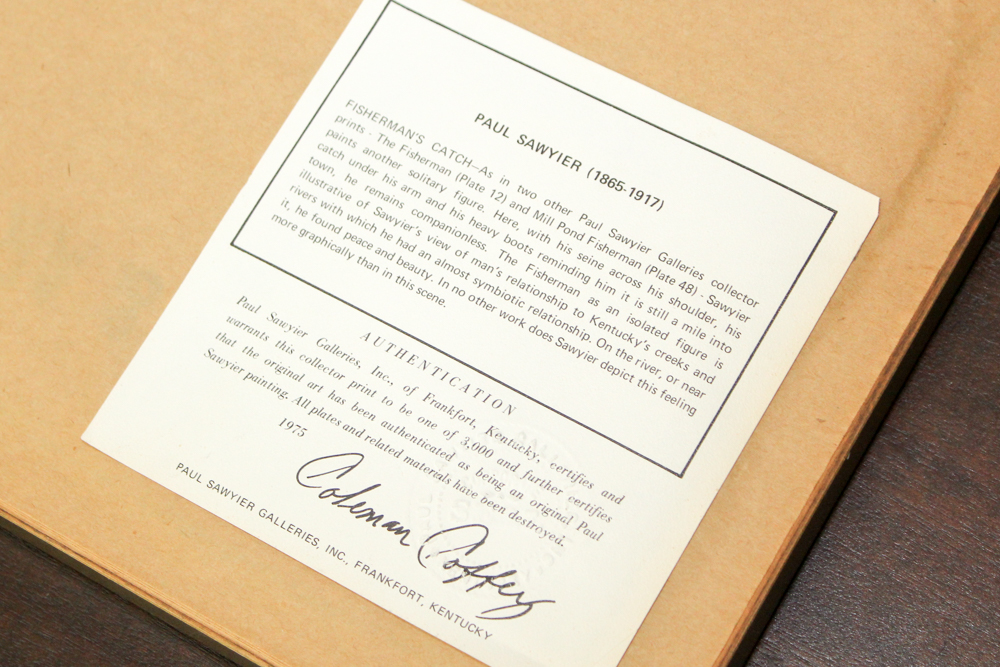 PAUL SAWYIER (1865-1917)
FISHERMAN'S CATCH—As in two other Paul Sawyier Galleries collector
prints - The Fisherman (Plate 12) and Mill Pond Fisherman (Plate 48) - Sawyier
paints another solitary figure. Here, with his seine across his shoulder, his
catch under his arm and his heavy boots reminding him it is still a mile into
town, he remains companionless. The Fisherman as an isolated figure is
illustrative of Sawyier's view of man's relationship to Kentucky's creeks and
rivers with which he had an almost symbiotic relationship. On the river, or near
it, he found peace and beauty. In no other work does Sawyier depict this feeling
more graphically than in this scene.
AUTHENTICATION
Paul Sawyier Galleries, Inc., of Frankfort, Kentucky, certifies and
warrants this collector print to be one of 3,000 and further certifies
that the original art has been authenticated as being an original Paul
Sawyier painting. All plates and related materials have been destroyed.
1975
Coleman Coffey
PAUL SAWYIER GALLERIES, INC., FRANKFORT, KENTUCKY